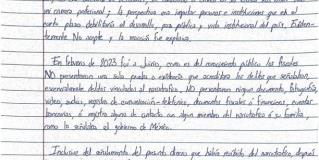 mi carrera profesional; la perspectiva era impulsar personas e instituciones que en el
corto plazo debilitaría el desarrollo, paz pública, y vida institucional del país. Eviden-
temente No acepté y la reacción fue explosiva.
En febrero de 2023 fui a Juicio, como es del conocimiento público las fiscales
NO presentaron una sola prueba o evidencia que acreditara los delitos que señalaban,
esencialmente delitos vinculados al narcotráfico, NO presentaron ningún documento, fotografía,
video, audios, registro de comunicación telefónica, documentos fiscales o financieros, cuentas
bancarias, o registro alguno de contacto con algún miembro del narcotráfico o su familia,
como lo señalaba el gobierno de México.
Inclusive del señalamiento del presunto dinero que había recibido del narcotráfico, después